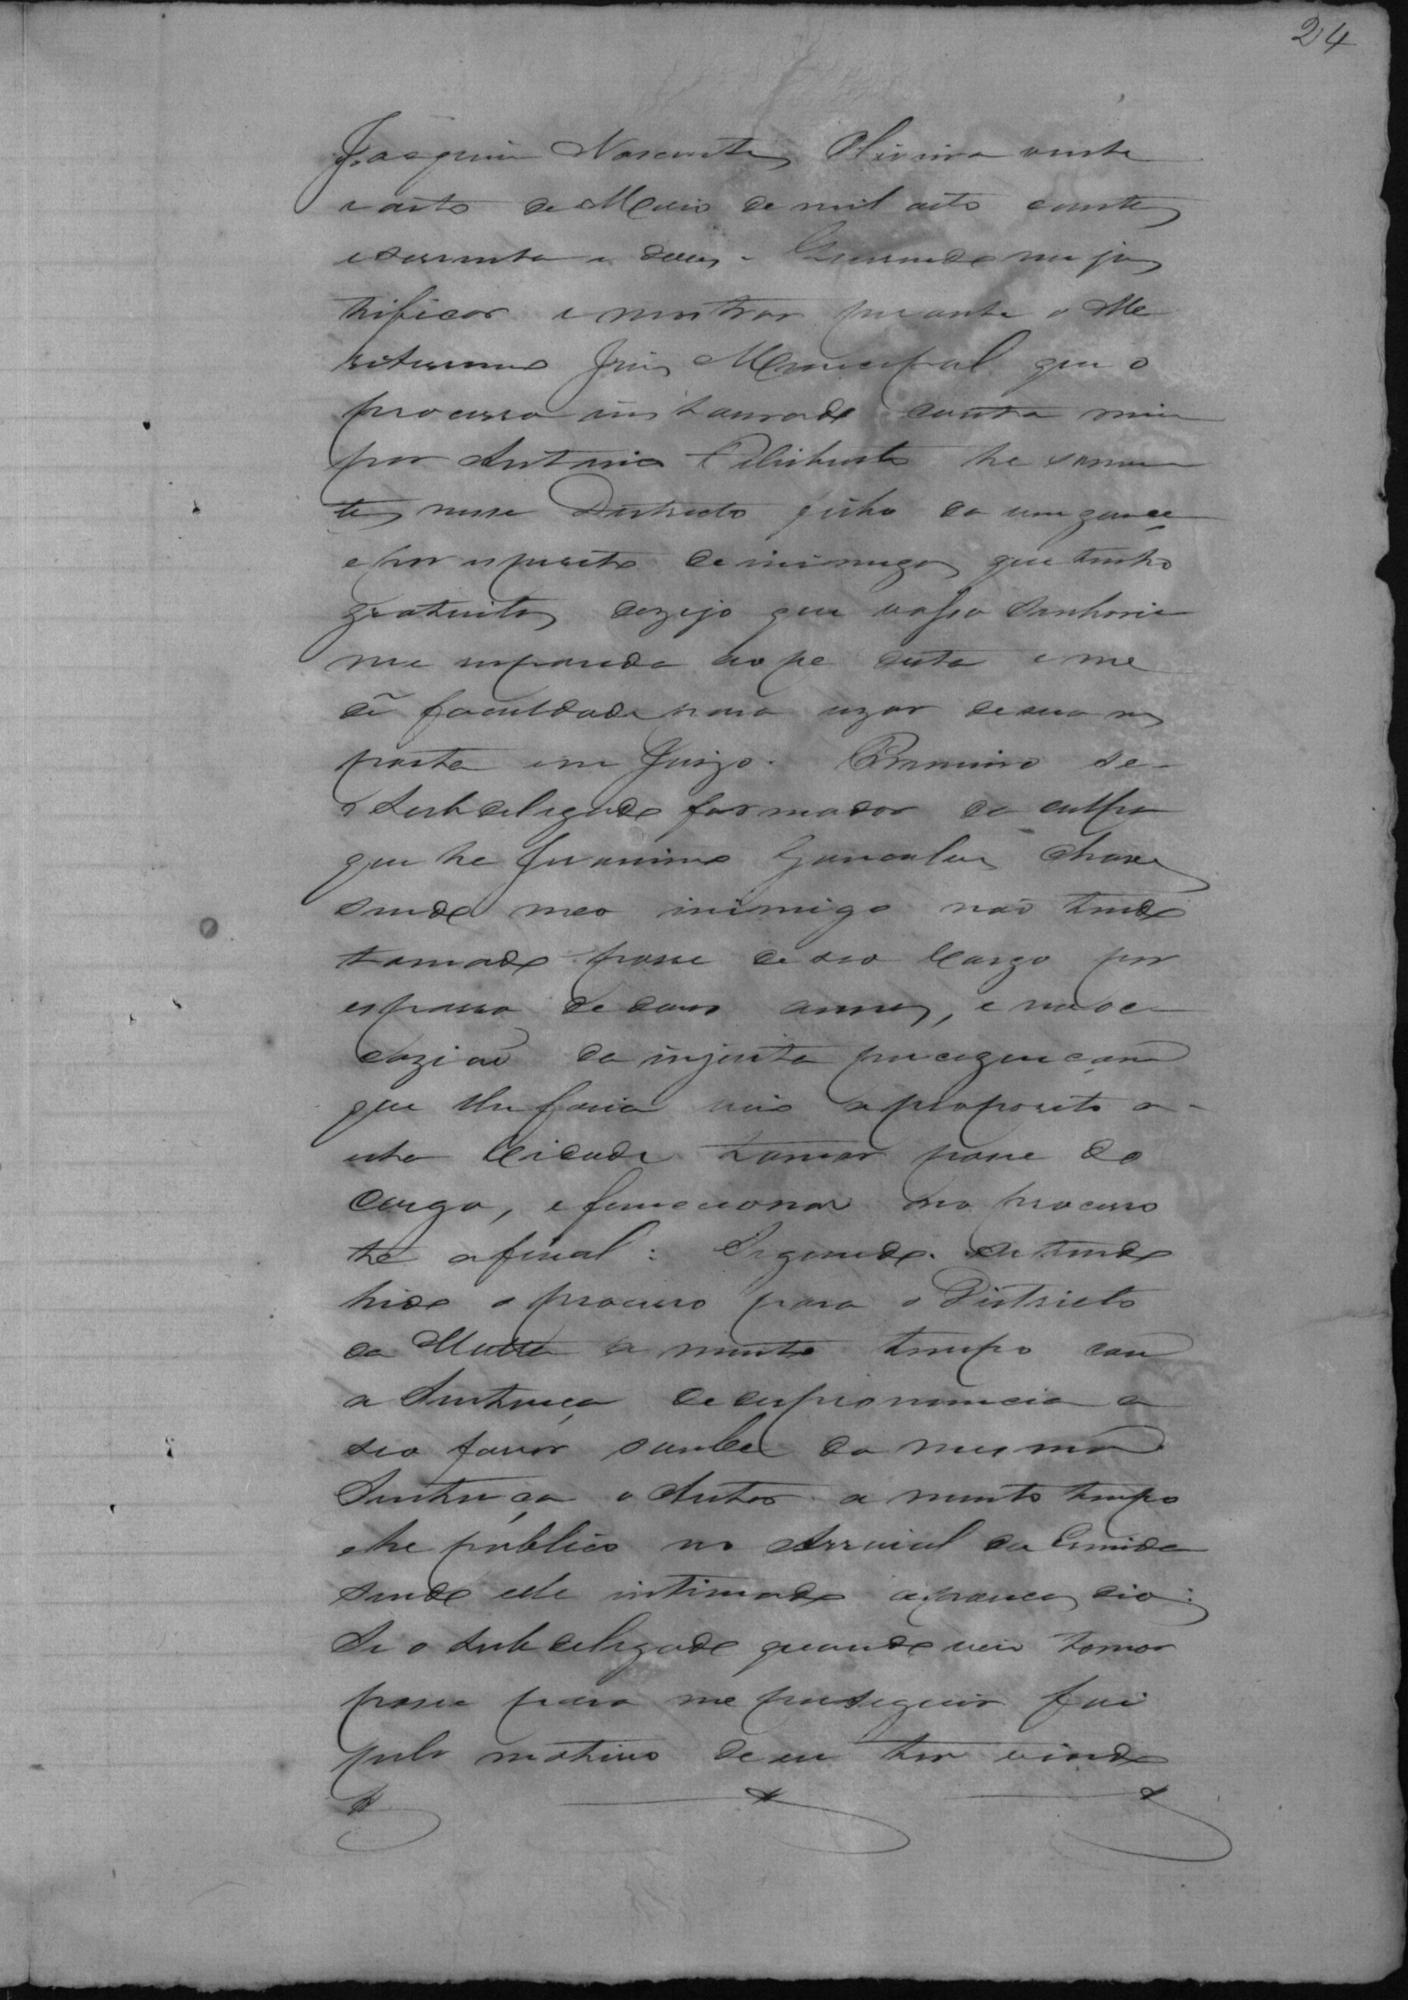 24
Joaquim Nascentes Oliveira vinte
e oito de Maio de mil oito centos
e secenta e dous. Querendo me jus
tificar e mostrar perante o Me
ritissimo Juis Municipal que o
processo instaurado contra mim
por Antonio he somen
te nesse Districto filho da vingança
e por espirito de inimigos que tenho
gratuitos dezejo que vossa Senhoria
me responda ao pe desta e me
dê faculdade para uzar de sua res
posta em Juizo. Primeiro se
o Subdelegado formador da culpa
que he Jeronimo Gonçalves Chaves
sendo meo inimigo não tendo
tomado posse de seo Cargo por
espasso de dous annos, e na oc
cazião da injusta preceguição
que lhe fazia veio a proposito a
esta Cidade tomar posse do
cargo, e funccionar no processo
the a final: Segundo. Se tendo
hido o processo para o Districto
da Matta a muito tempo com
a Sentença de despronuncia a
seo favor soube da mesma
Sentença o Autor a muito tempo
e he publico no Arraial da Ermida
sendo elle intimado a poucos dias:
Se o Subdelegado quando veio tomar
posse para me perseguir foi
pelo motivo de eu ter vindo